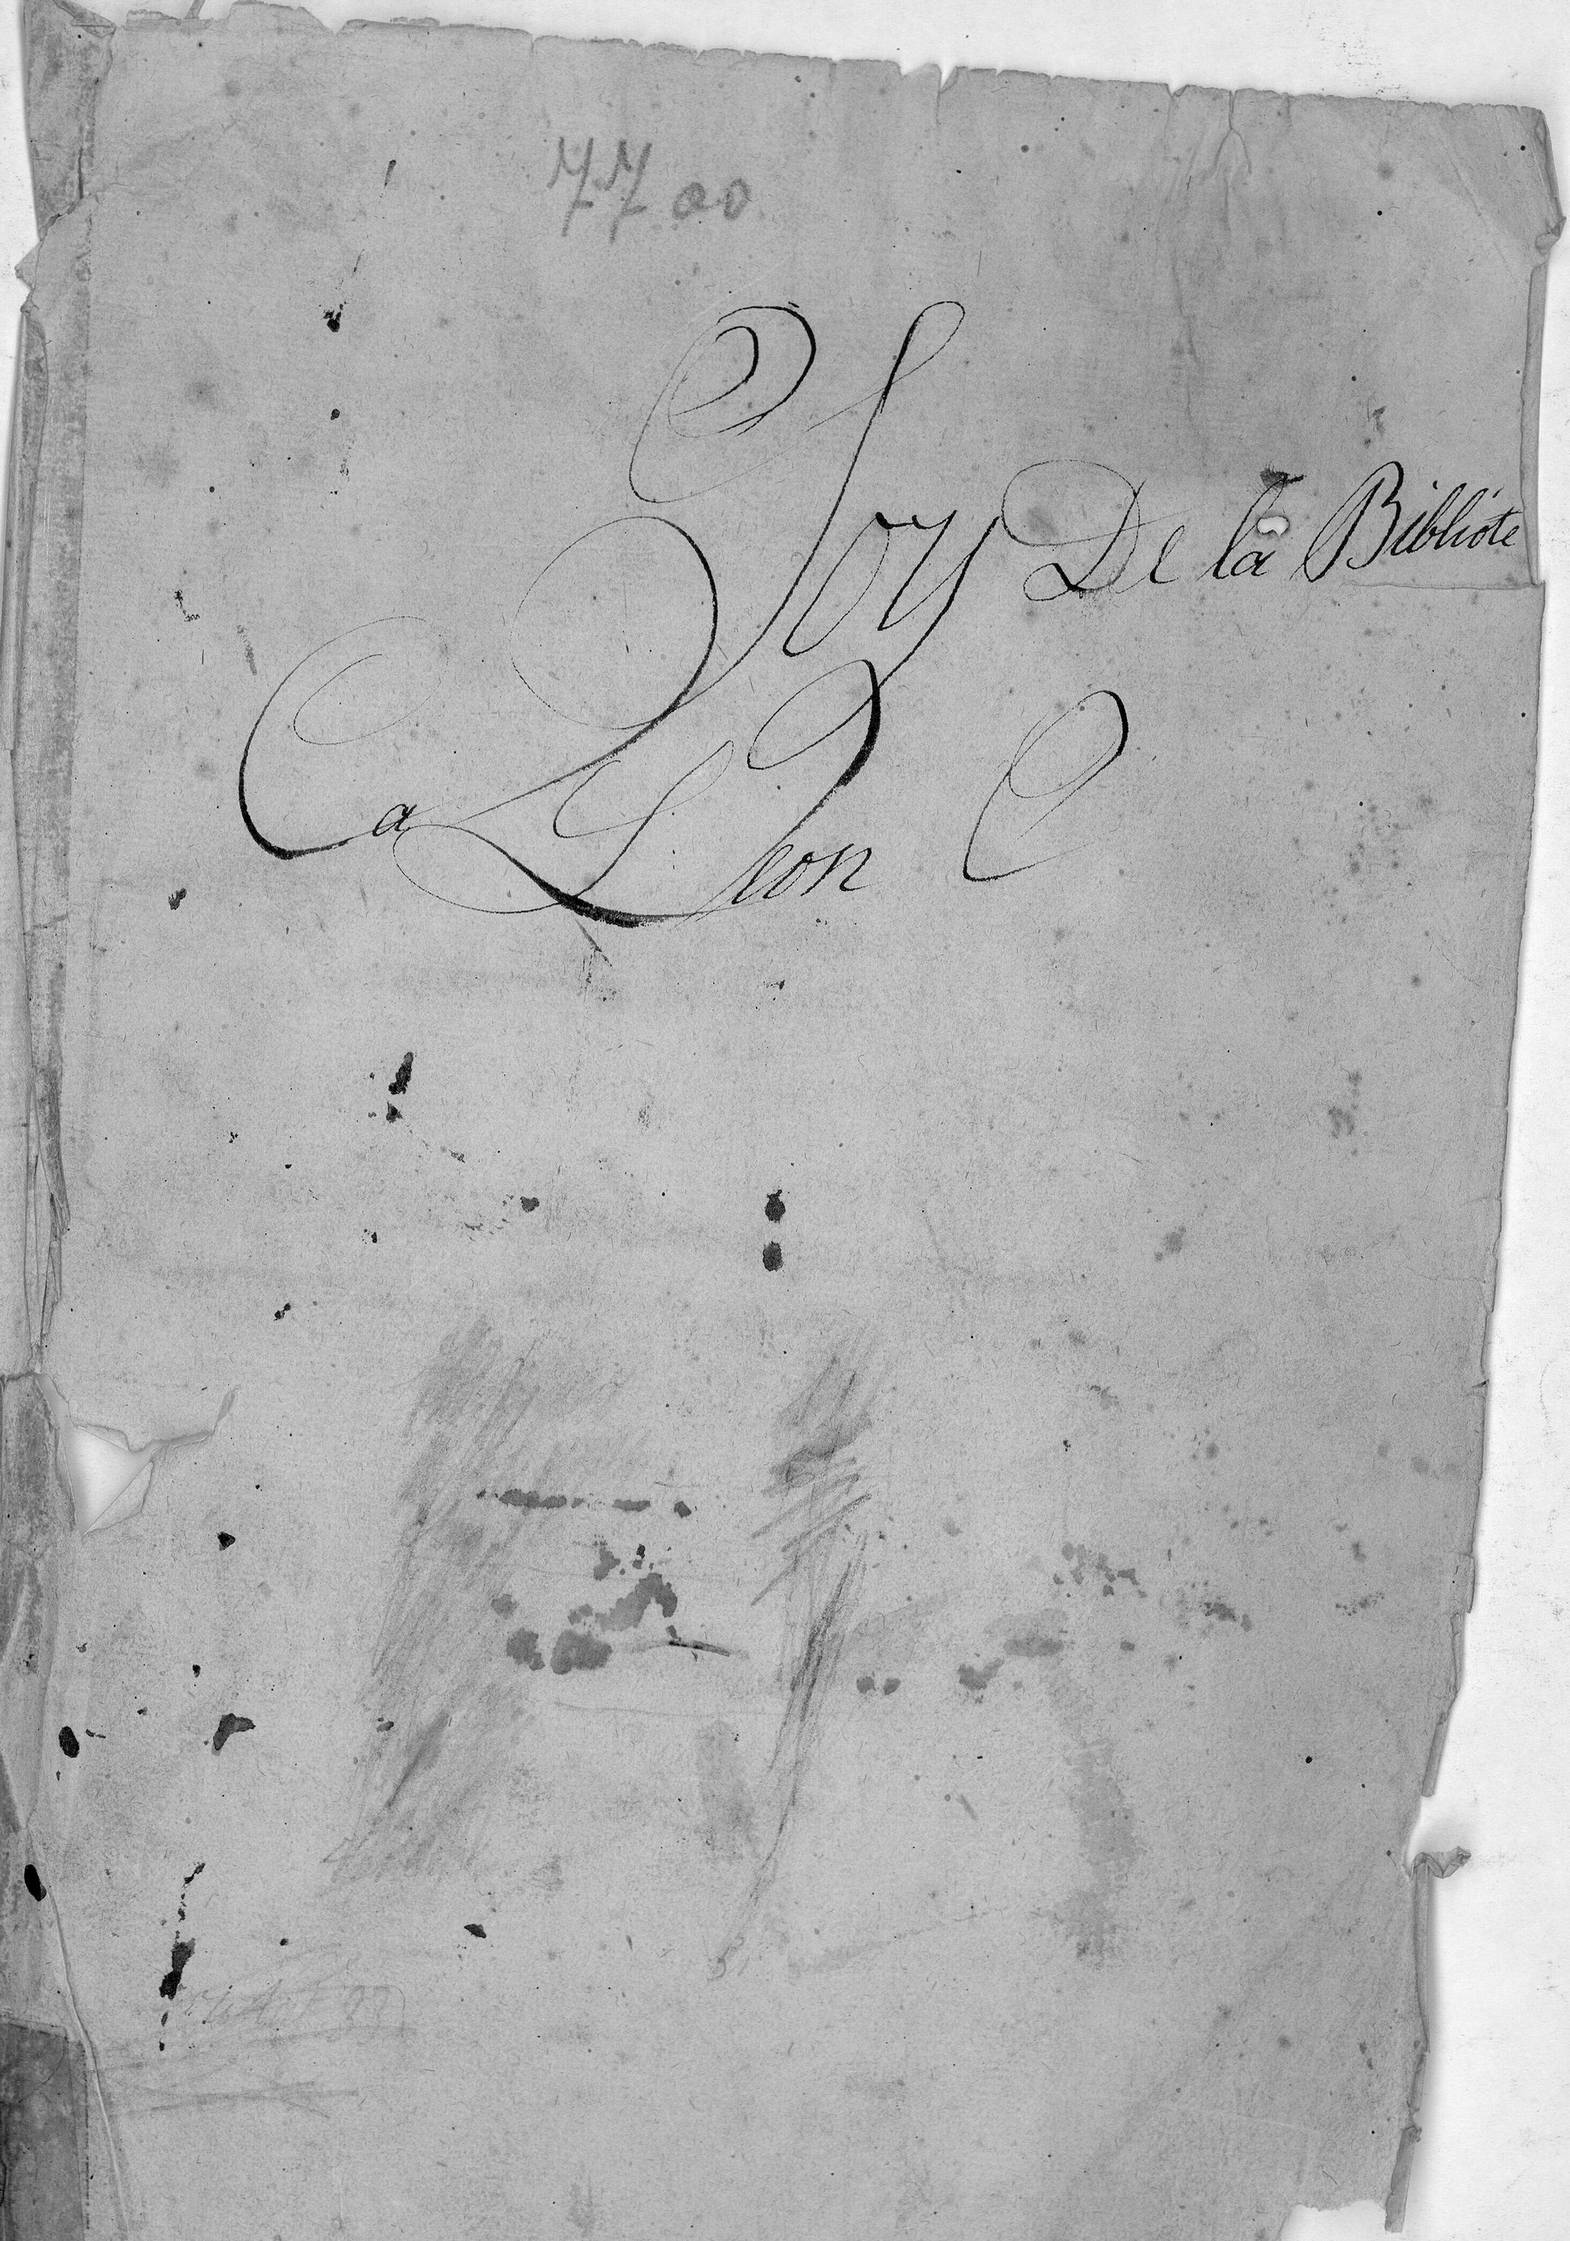 77.00
Soy De la Bibliote
Ca Leon C